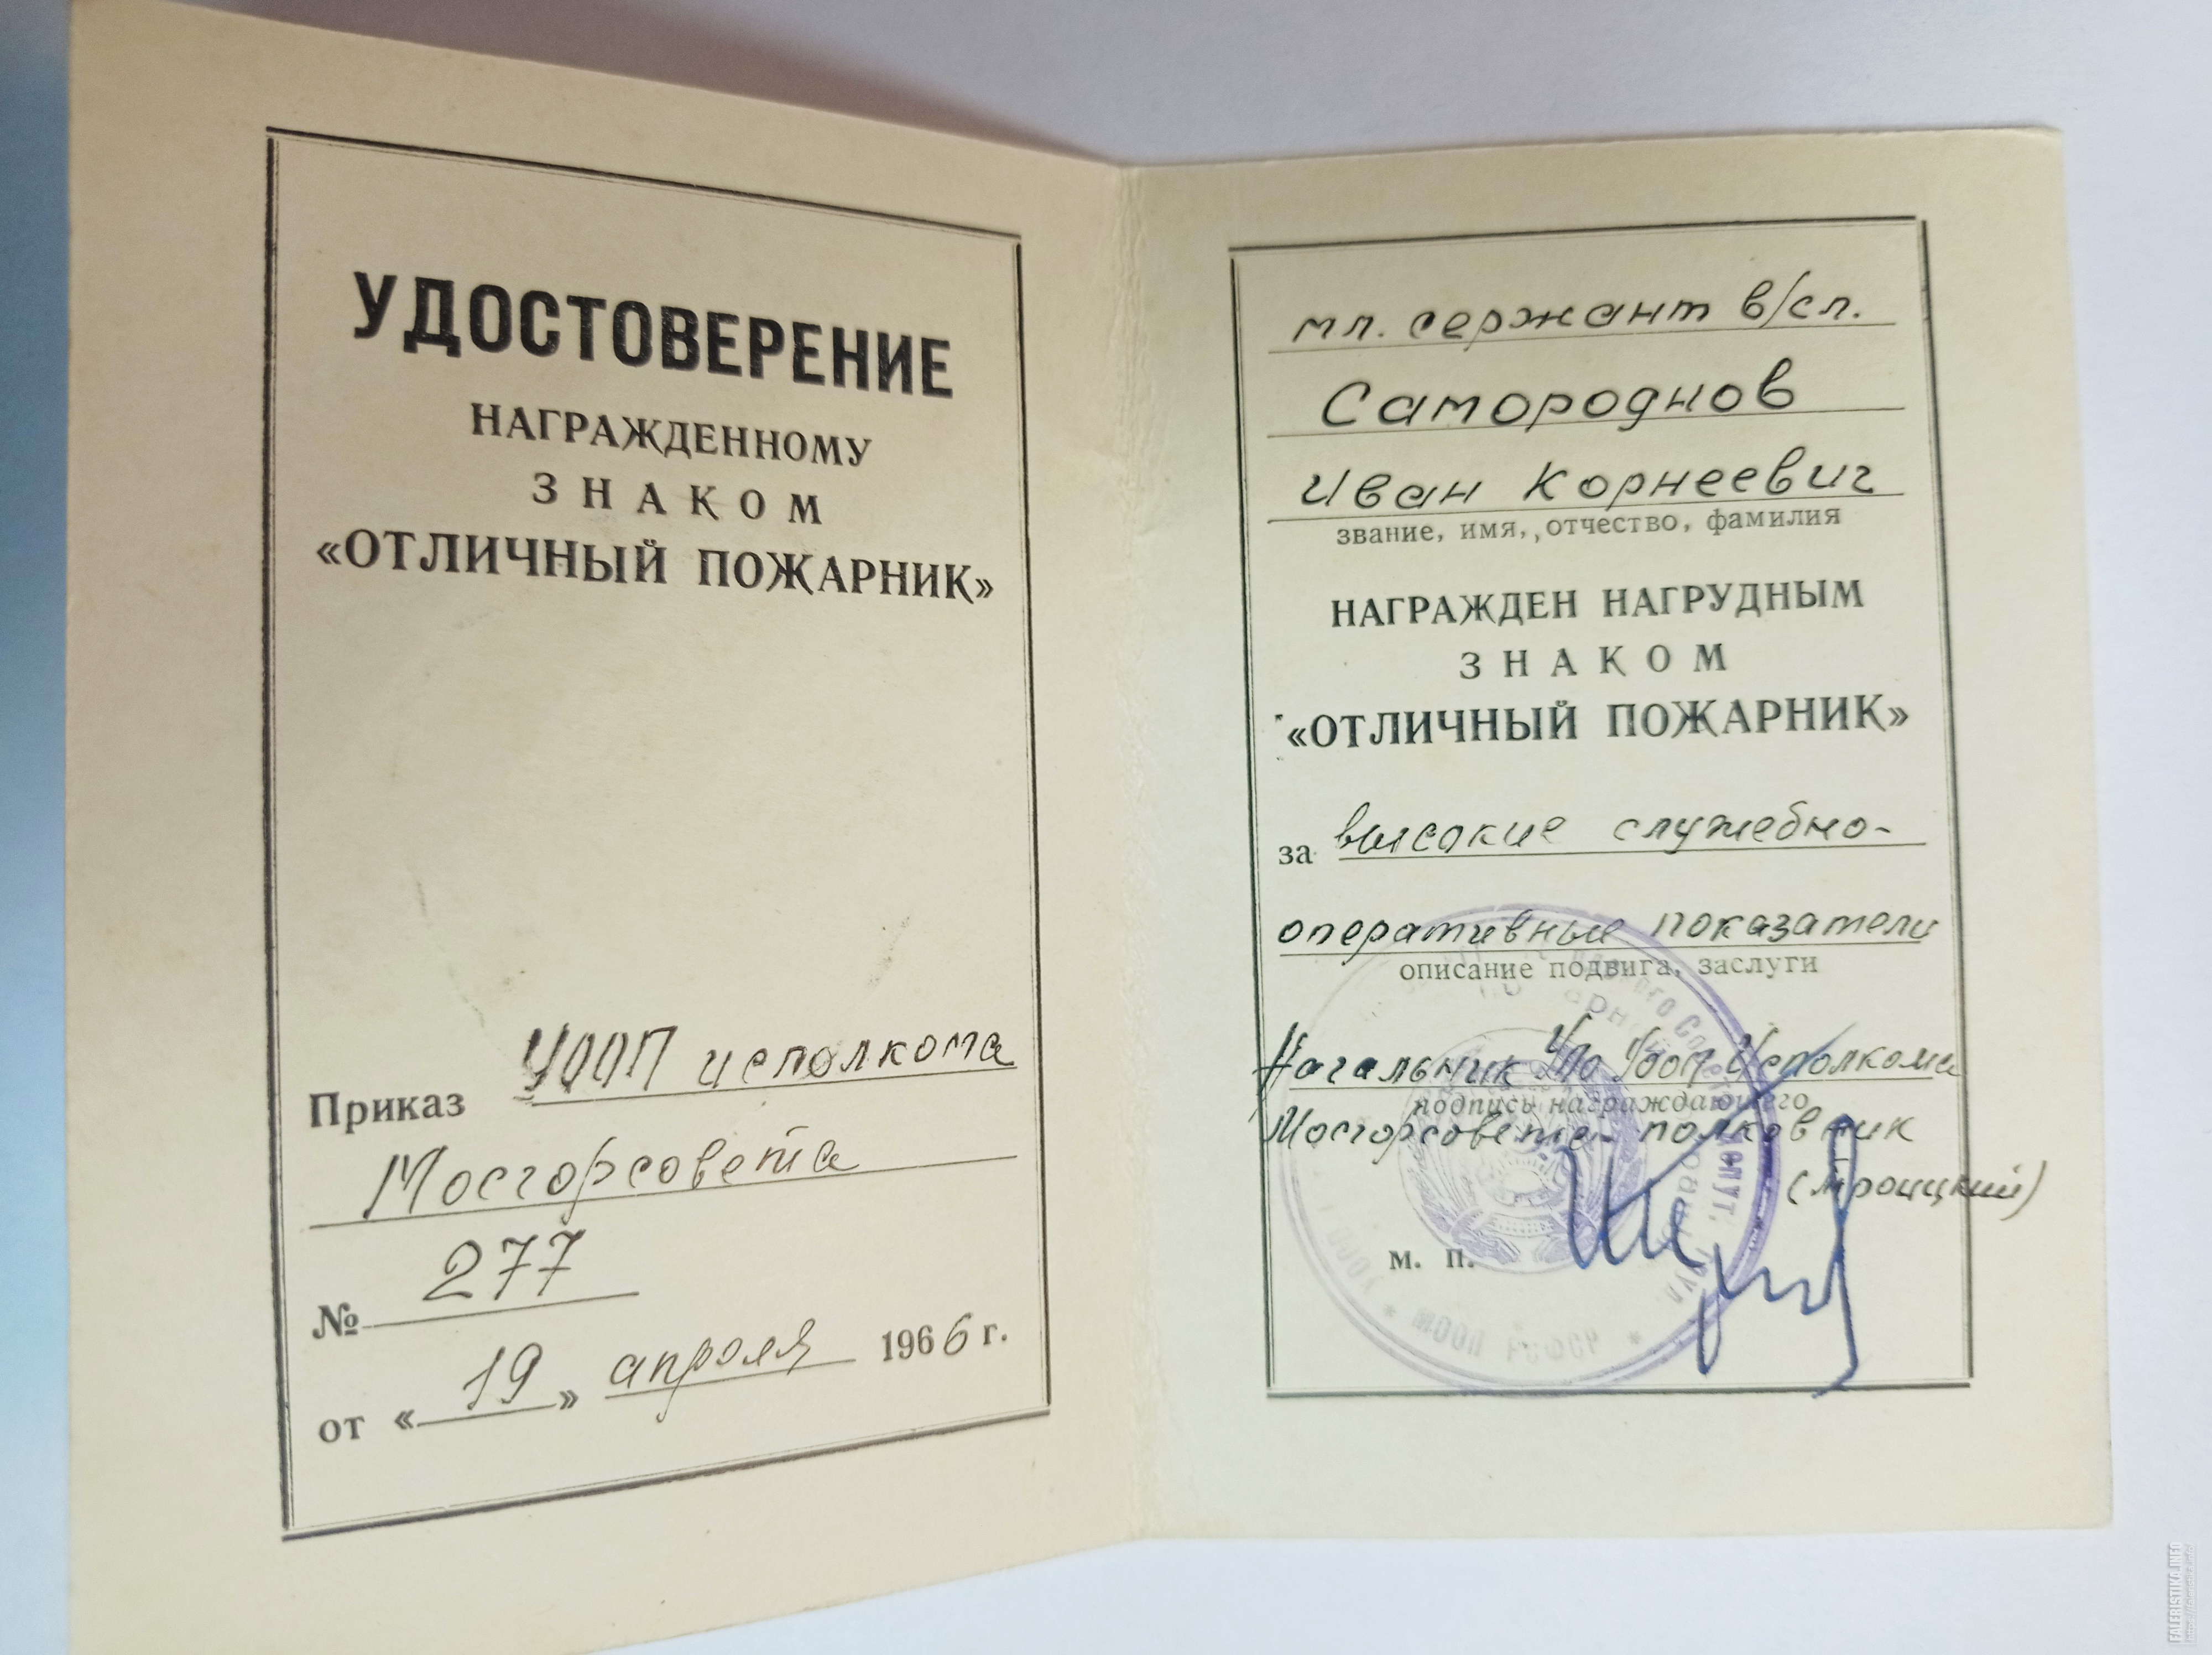 УДОСТОВЕРЕНИЕ
НАГРАЖДЕННОМУ
ЗНАКОМ
«ОТЛИЧНЫЙ ПОЖАРНИК»
Приказ УООП исполкома
Мосгорсовета
№ 277
от «19» апреля 1966 г.
мл. сержант в/сл.
Самороднов
Иван Корнеевич
звание, имя, отчество, фамилия
НАГРАЖДЕН НАГРУДНЫМ
ЗНАКОМ
«ОТЛИЧНЫЙ ПОЖАРНИК»
за высокие служебно-
оперативные показатели
описание подвига, заслуги
Начальник УПО УООП Исполкома
подпись награждающего
Мосгорсовета полковник
(Троицкий)
м. п.
FALERISTIKA.INFO